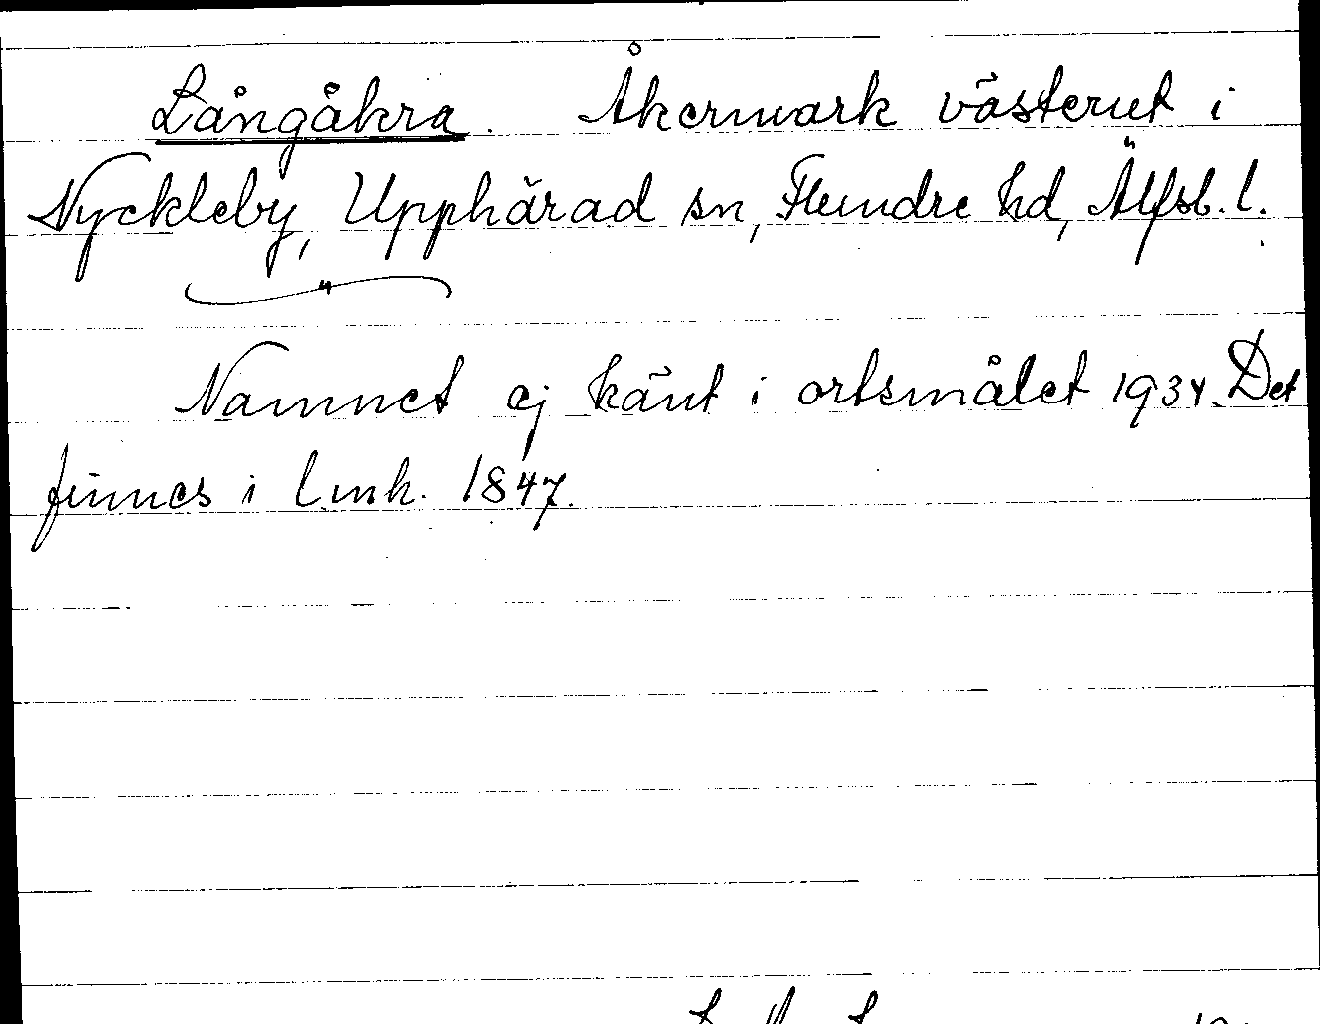 Långåkra. Åkermark västerut i
Nyckleby, Upphärad sn, Flundre hd, Älfsb. l.
Namnet ej känt i ortsmålet 1934. Det
finnes i lmk. 1847.